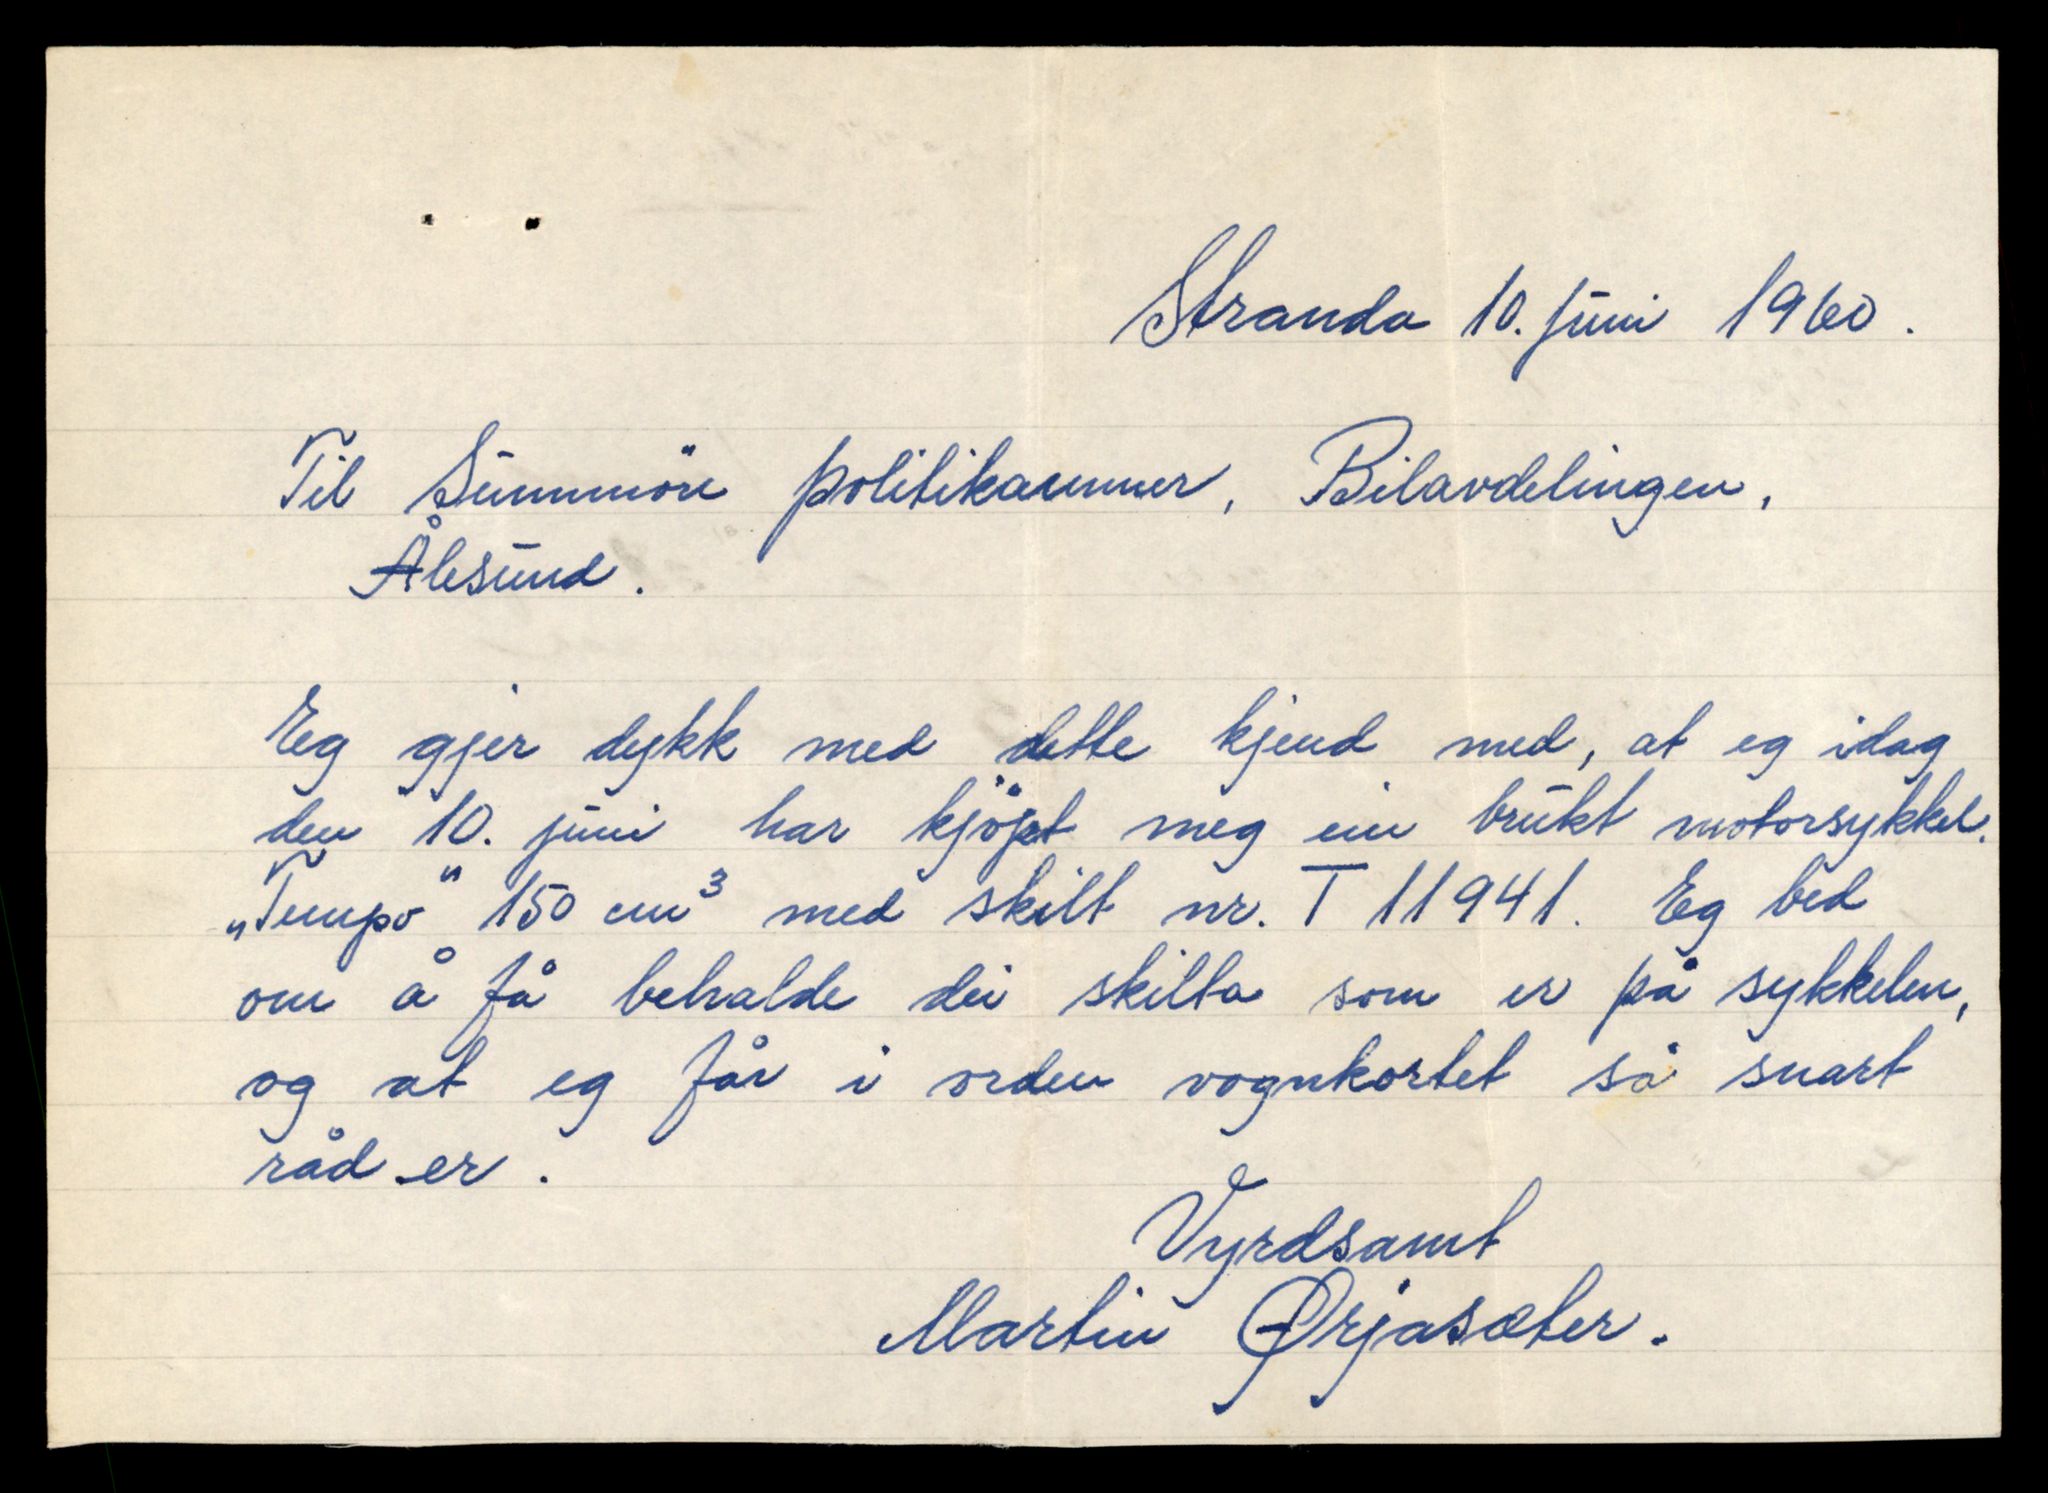 Stranda 10. juni 1960.
Til Sunnmöre politikammer, Bilavdelingen,
Ålesund.
Eg gjer dykk med dette kjend med, at eg idag
den 10. juni har kjöpt meg ein brukt motorsykkel.
„Tempo" 150 cm³ med skilt nr. T 11941. Eg bed
om å få behalde dei skilta som er på sykkelen,
og at eg får i orden vognkortet så snart
råd er.
Vyrdsamt
Martin Ørjasæter.